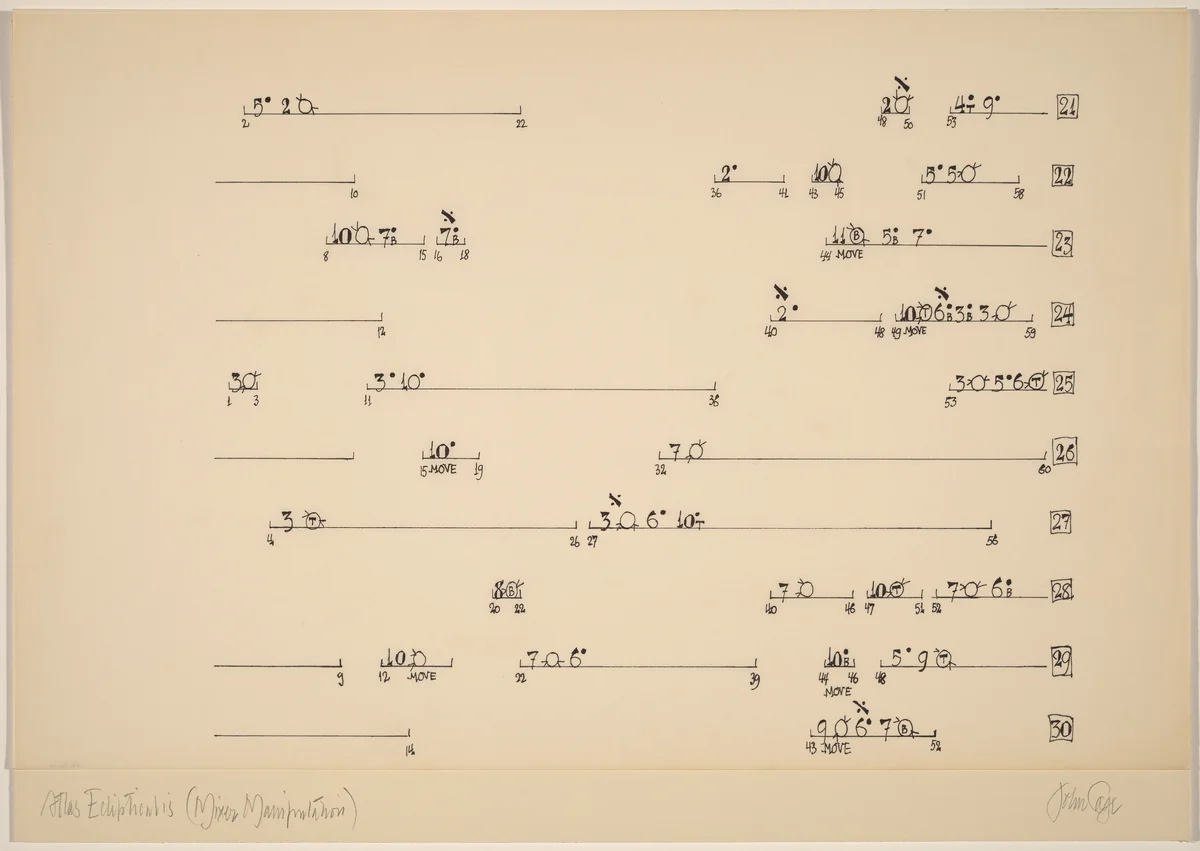 5 2 48 2 4 T 9 21
2 22 50 53
2 10 5 5 22
10 36 41 43 45 51 58
10 7 B 7 B 11 B 5 B 7 23
8 15 16 18 44 MOVE
2 10 T 6 B 3 B 3 24
12 40 48 49 MOVE 59
3 3 10 3 5 6 T 25
1 3 11 36 53
10 7 26
15 MOVE 19 32 60
3 T 3 6 10 T 27
4 26 27 56
8 B 7 10 T 7 6 B 28
20 22 40 46 47 51 52
10 7 6 10 B 5 9 T 29
9 12 MOVE 22 39 44 46 48
MOVE
9 6 7 B 30
14 43 MOVE 52
Atlas Eclipticalis (Mixer Manipulation) John Cage